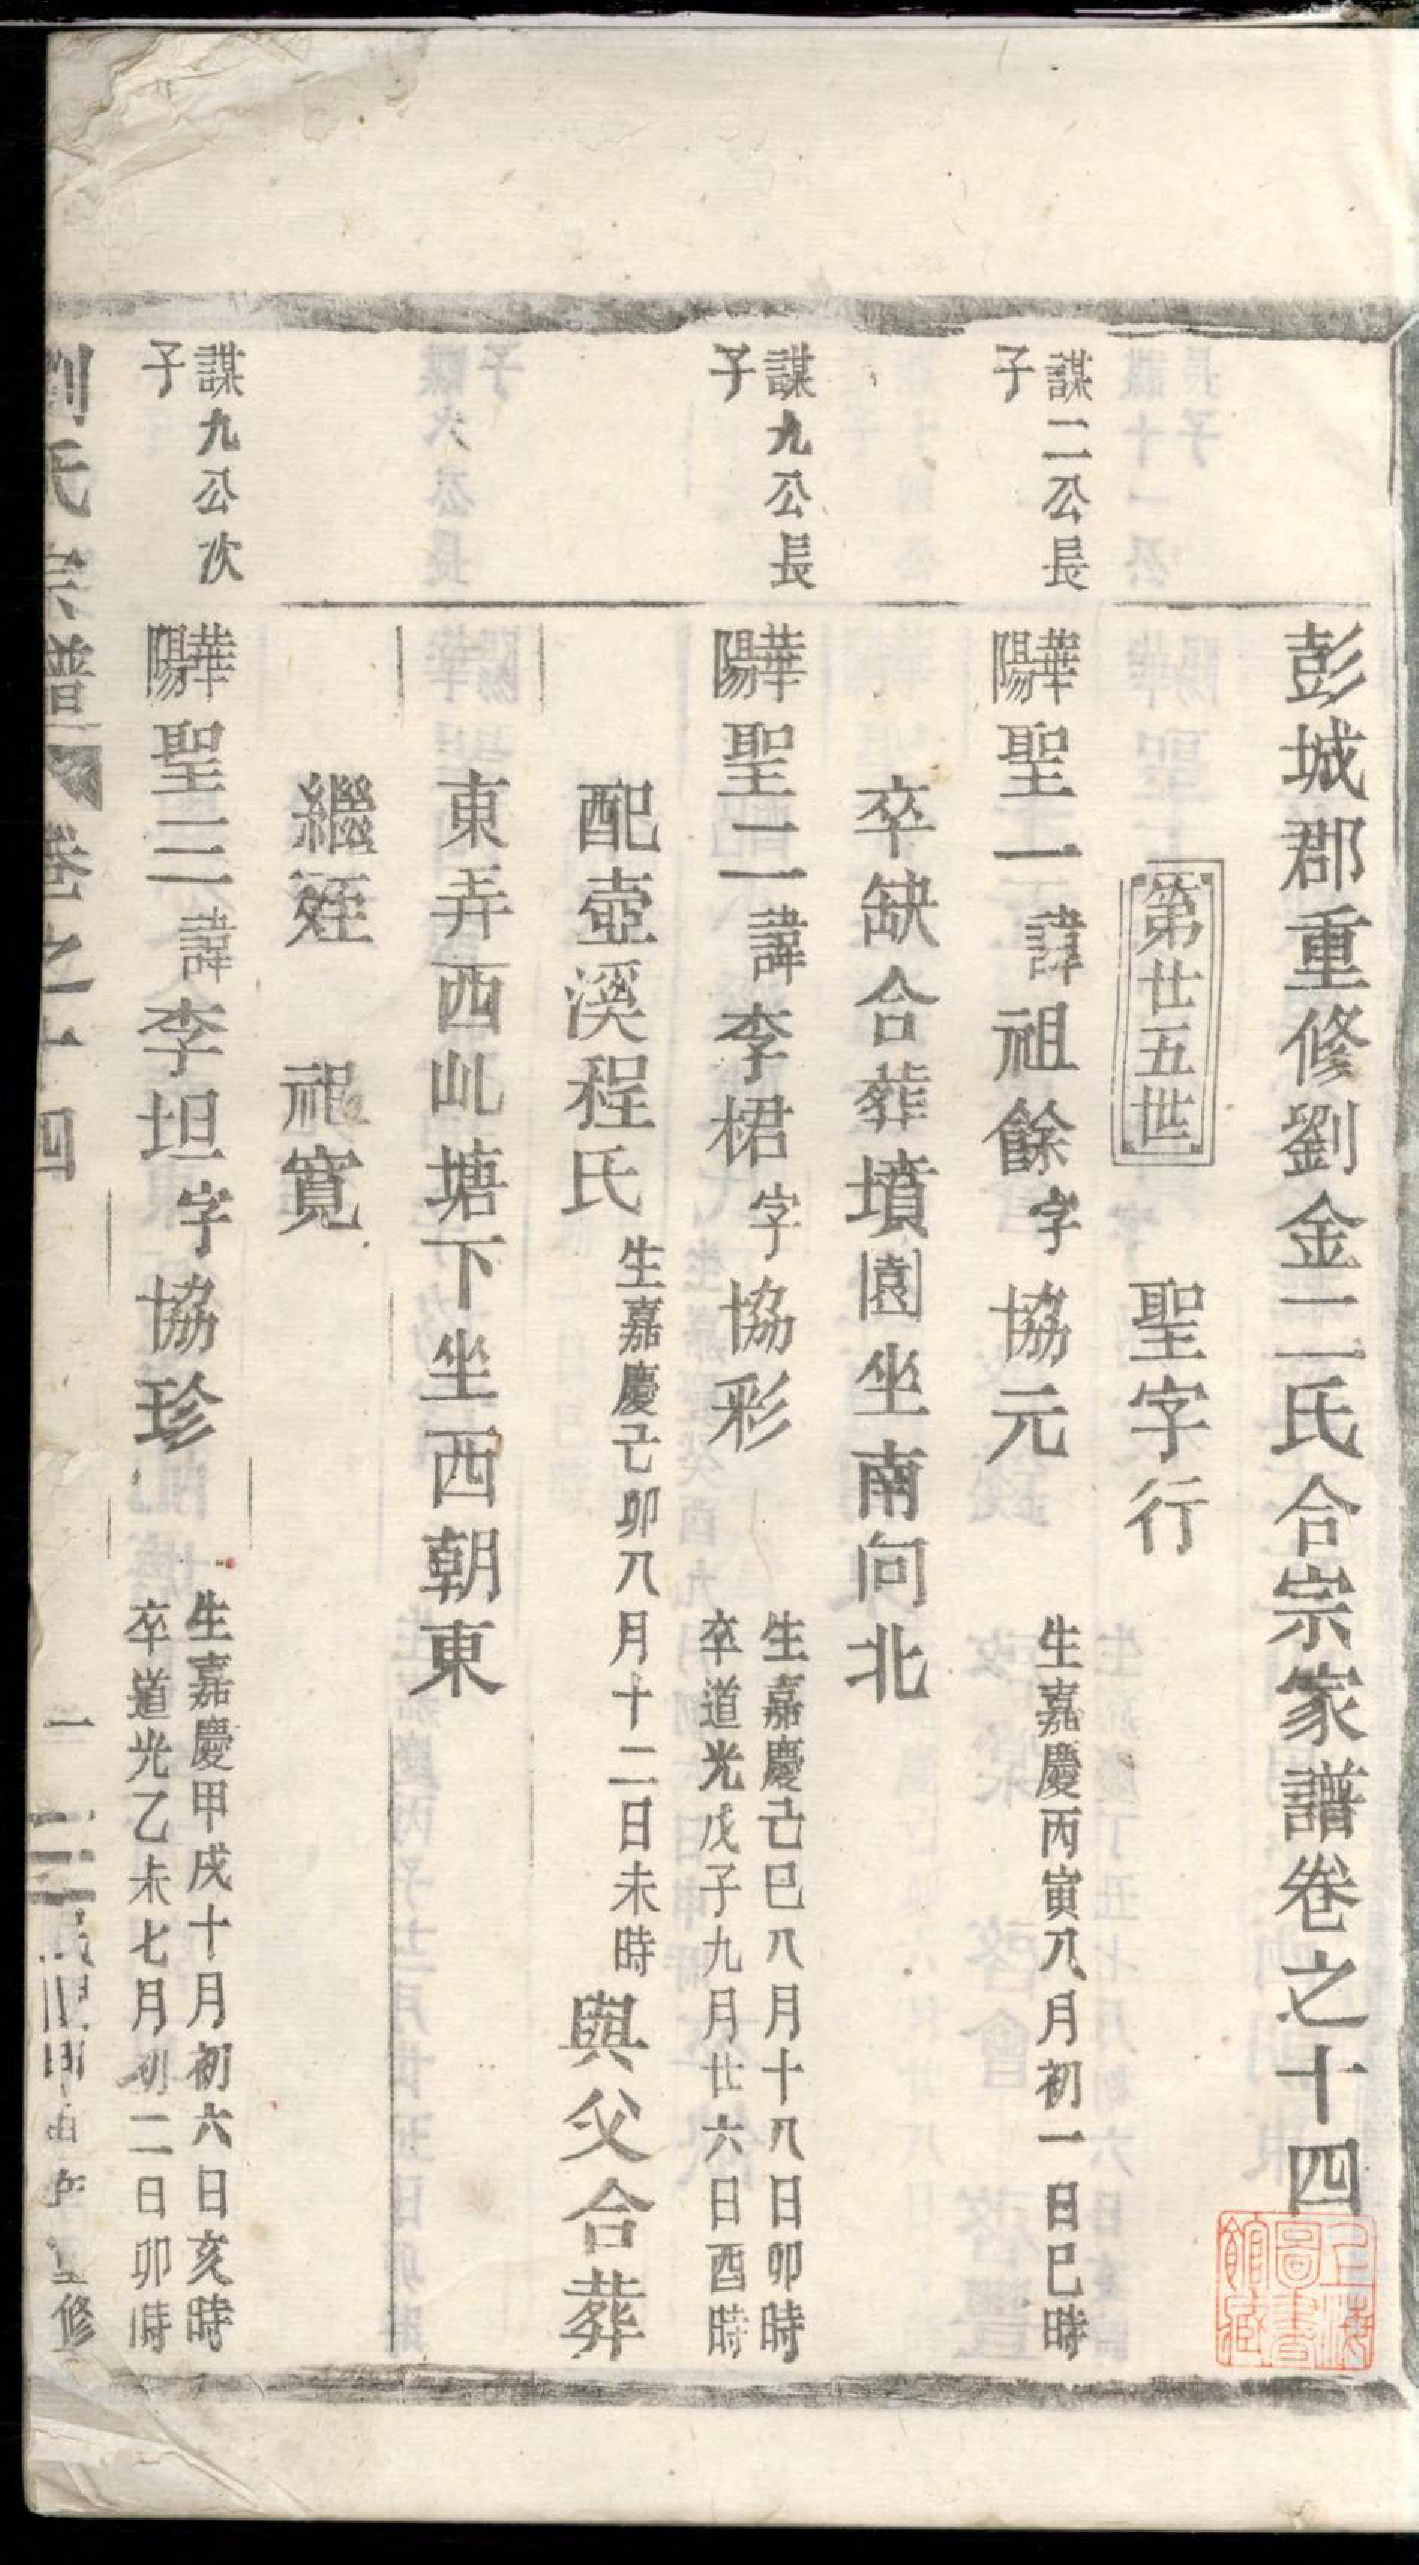 彭城郡重修劉金二氏合宗家譜卷之十四
上海圖書館藏
第廿五世
聖字行
謀二公長子
華陽聖一諱祖餘字協元
生嘉慶丙寅八月初一日巳時
卒缺合葬墳園坐南向北
謀九公長子
華陽聖二諱李桾字協彩
生嘉慶己巳八月十八日卯時
卒道光戊子九月廿六日酉時
配壺溪程氏
生嘉慶己卯八月十二日未時
與父合葬
東弄西乢塘下坐西朝東
繼姪 祖寬
謀九公次子
華陽聖三諱李坦字協珍
生嘉慶甲戌十月初六日亥時
卒道光乙未七月初二日卯時
劉氏宗譜
卷之十四
一
重修